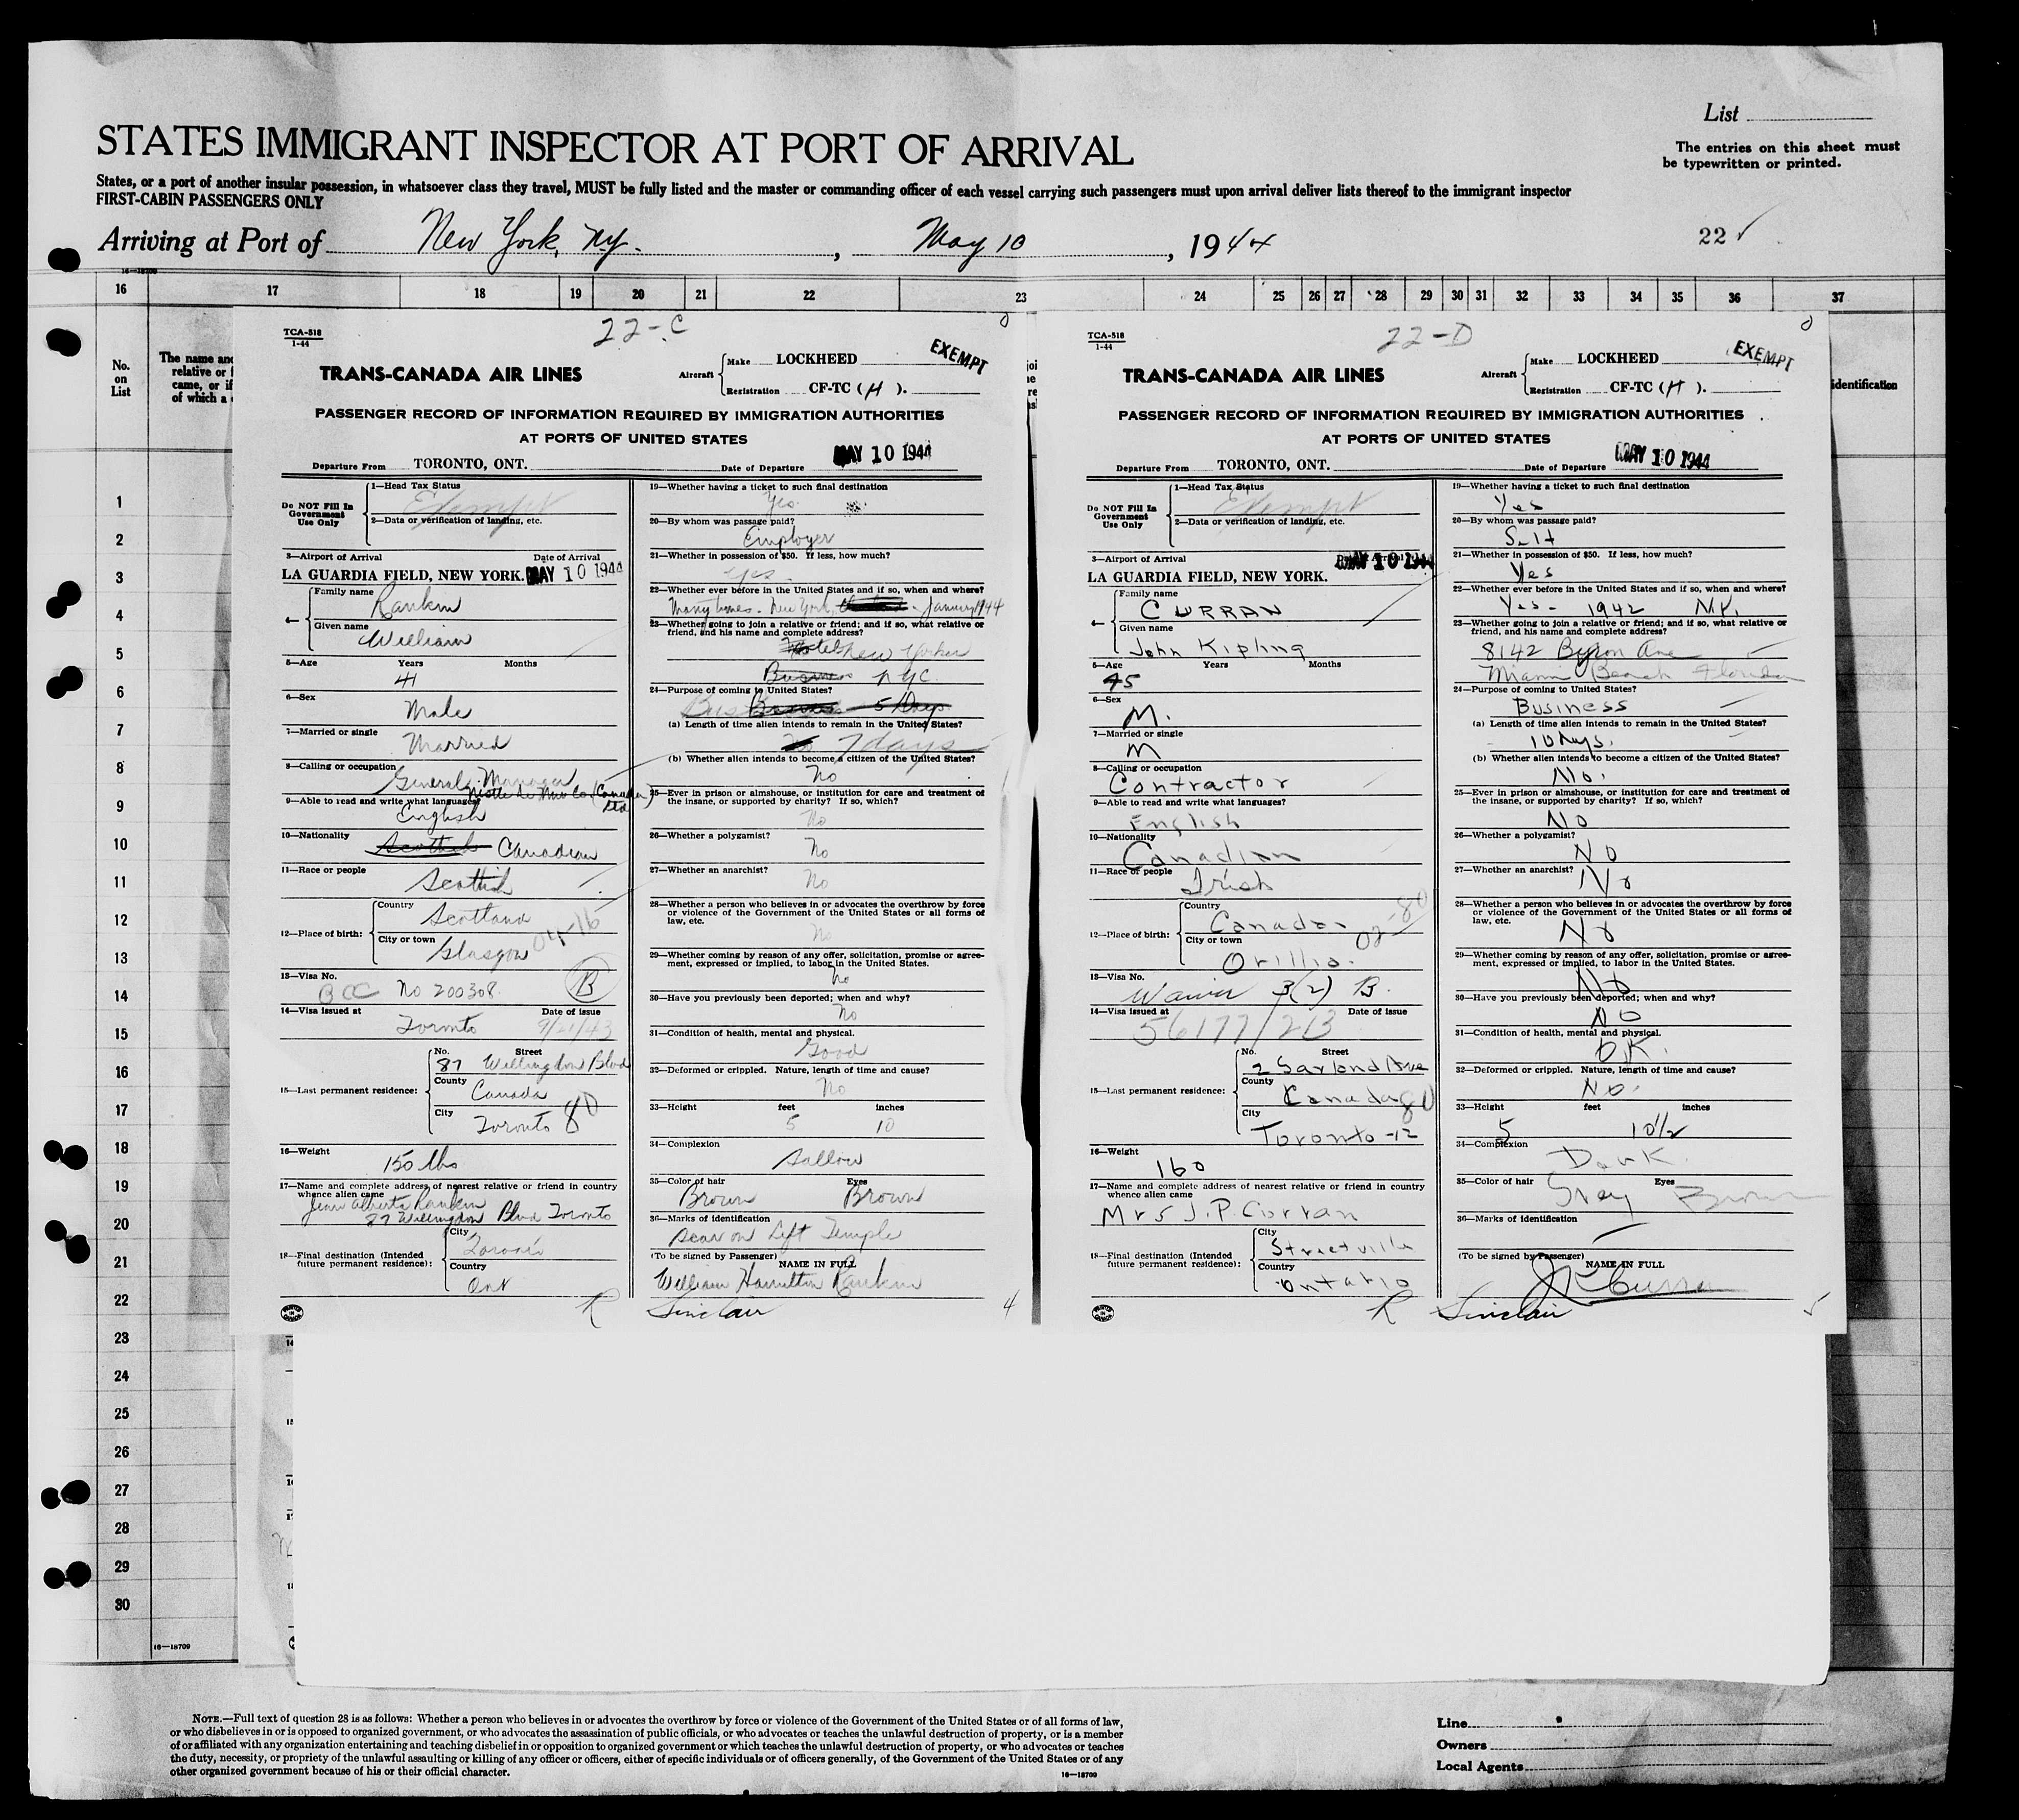 List
STATES IMMIGRANT INSPECTOR AT PORT OF ARRIVAL
The entries on this sheet must
be typewritten or printed.
States, or a port of another insular possession, in whatsoever class they travel, MUST be fully listed and the master or commanding officer of each vessel carrying such passengers must upon arrival deliver lists thereof to the immigrant inspector
FIRST-CABIN PASSENGERS ONLY
Arriving at Port of New York, N.Y., May 10, 1944
22
16—18709
16 17 18 19 20 21 22 23 24 25 26 27 28 29 30 31 32 33 34 35 36 37
No.
on
List
The name and
relative or
came, or if
of which a
identification
1
2
3
4
5
6
7
8
9
10
11
12
13
14
15
16
17
18
19
20
21
22
23
24
25
26
27
28
29
30
16—18709
22-C
TCA-518
1-44
EXEMPT
TRANS-CANADA AIR LINES
Aircraft
Make LOCKHEED
Registration CF-TC (H).
PASSENGER RECORD OF INFORMATION REQUIRED BY IMMIGRATION AUTHORITIES
AT PORTS OF UNITED STATES
Departure From TORONTO, ONT. Date of Departure MAY 10 1944
Do NOT Fill In
Government
Use Only
1—Head Tax Status
Exempt
2—Data or verification of landing, etc.
3—Airport of Arrival Date of Arrival
LA GUARDIA FIELD, NEW YORK. MAY 10 1944
4— Family name
Rankin
Given name
William
5—Age Years Months
41
6—Sex
Male
7—Married or single
Married
8—Calling or occupation
General Manager
(Canada)
Ltd
9—Able to read and write what languages?
English
10—Nationality
Scottish Canadian
11—Race or people
Scottish
12—Place of birth:
Country
Scotland
City or town
Glasgow
04-16
13—Visa No.
BCC No 200308. B
14—Visa issued at Date of Issue
Toronto 9/21/43
15—Last permanent residence:
No. Street
87 Willingdon Blvd
County
Canada
City
Toronto 80
16—Weight
150 lbs
17—Name and complete address of nearest relative or friend in country
whence alien came
Jean Alberta Rankin
87 Willingdon Blvd Toronto
18—Final destination (Intended
future permanent residence):
City
Toronto
Country
Ont
19—Whether having a ticket to such final destination
Yes
20—By whom was passage paid?
Employer
21—Whether in possession of $50. If less, how much?
Yes
22—Whether ever before in the United States and if so, when and where?
Many times - New York, - January/44
23—Whether going to join a relative or friend; and if so, what relative or
friend, and his name and complete address?
Hotel New Yorker
Business NYC
24—Purpose of coming to United States?
Bus Business 5 Days
(a) Length of time alien intends to remain in the United States?
No 7 days
(b) Whether alien intends to become a citizen of the United States?
No
25—Ever in prison or almshouse, or institution for care and treatment of
the insane, or supported by charity? If so, which?
No
26—Whether a polygamist?
No
27—Whether an anarchist?
No
28—Whether a person who believes in or advocates the overthrow by force
or violence of the Government of the United States or all forms of
law, etc.
No
29—Whether coming by reason of any offer, solicitation, promise or agree-
ment, expressed or implied, to labor in the United States.
No
30—Have you previously been deported; when and why?
No
31—Condition of health, mental and physical.
Good
32—Deformed or crippled. Nature, length of time and cause?
No
33—Height feet inches
5 10
34—Complexion
Sallow
35—Color of hair Eyes
Brown Brown
36—Marks of identification
Scar on Left Temple
(To be signed by Passenger) NAME IN FULL
William Hamilton Rankin
R Sinclair 4
22-D
TCA-518
1-44
EXEMPT
TRANS-CANADA AIR LINES
Aircraft
Make LOCKHEED
Registration CF-TC (H).
PASSENGER RECORD OF INFORMATION REQUIRED BY IMMIGRATION AUTHORITIES
AT PORTS OF UNITED STATES
Departure From TORONTO, ONT. Date of Departure MAY 10 1944
Do NOT Fill In
Government
Use Only
1—Head Tax Status
Exempt
2—Data or verification of landing, etc.
3—Airport of Arrival
LA GUARDIA FIELD, NEW YORK. MAY 10 1944
4— Family name
CURRAN
Given name
John Kipling
5—Age Years Months
45
6—Sex
M.
7—Married or single
M
8—Calling or occupation
Contractor
9—Able to read and write what languages?
English
10—Nationality
Canadian
11—Race or people
Irish
12—Place of birth:
Country
Canada
City or town
Orillia.
02-80
13—Visa No.
Waiver 3(2) B.
14—Visa issued at Date of Issue
56177/213
15—Last permanent residence:
No. Street
2 Garland Ave
County
Canada 80
City
Toronto-12
16—Weight
160
17—Name and complete address of nearest relative or friend in country
whence alien came
Mrs J.P. Curran
18—Final destination (Intended
future permanent residence):
City
Streetsville
Country
Ontario
19—Whether having a ticket to such final destination
Yes
20—By whom was passage paid?
Self
21—Whether in possession of $50. If less, how much?
Yes
22—Whether ever before in the United States and if so, when and where?
Yes - 1942 N.Y.
23—Whether going to join a relative or friend; and if so, what relative or
friend, and his name and complete address?
8142 Byron Ave
Miami Beach Florida
24—Purpose of coming to United States?
Business
(a) Length of time alien intends to remain in the United States?
10 Days.
(b) Whether alien intends to become a citizen of the United States?
No.
25—Ever in prison or almshouse, or institution for care and treatment of
the insane, or supported by charity? If so, which?
No
26—Whether a polygamist?
No
27—Whether an anarchist?
No
28—Whether a person who believes in or advocates the overthrow by force
or violence of the Government of the United States or all forms of
law, etc.
No
29—Whether coming by reason of any offer, solicitation, promise or agree-
ment, expressed or implied, to labor in the United States.
No
30—Have you previously been deported; when and why?
No
31—Condition of health, mental and physical.
O.K.
32—Deformed or crippled. Nature, length of time and cause?
No.
33—Height feet inches
5 10½
34—Complexion
Dark.
35—Color of hair Eyes
Grey Brown
36—Marks of identification
(To be signed by Passenger) NAME IN FULL
JK Curran
R Sinclair 5
NOTE.—Full text of question 28 is as follows: Whether a person who believes in or advocates the overthrow by force or violence of the Government of the United States or of all forms of law,
or who disbelieves in or is opposed to organized government, or who advocates the assassination of public officials, or who advocates or teaches the unlawful destruction of property, or is a member
of or affiliated with any organization entertaining and teaching disbelief in or opposition to organized government or which teaches the unlawful destruction of property, or who advocates or teaches
the duty, necessity, or propriety of the unlawful assaulting or killing of any officer or officers, either of specific individuals or of officers generally, of the Government of the United States or of any
other organized government because of his or their official character.
16—18709
Line
Owners
Local Agents